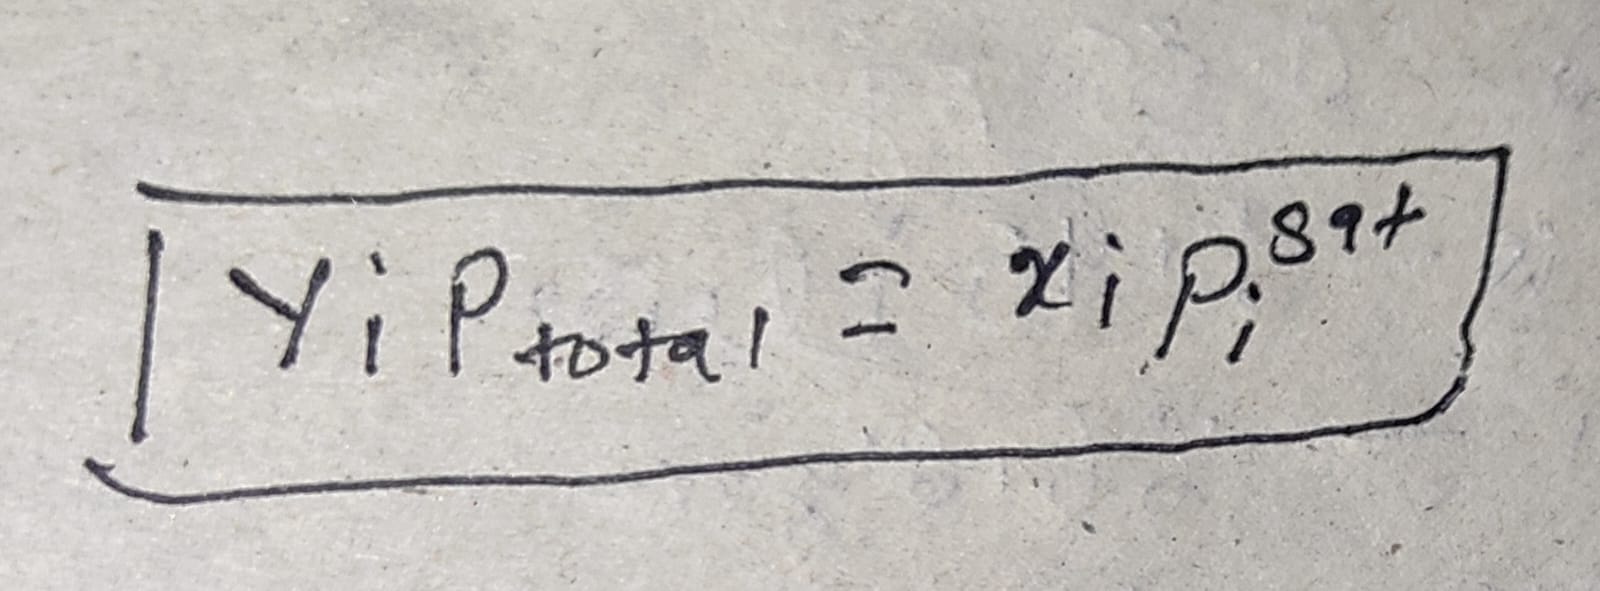 y_i P_total = x_i P_i^sat